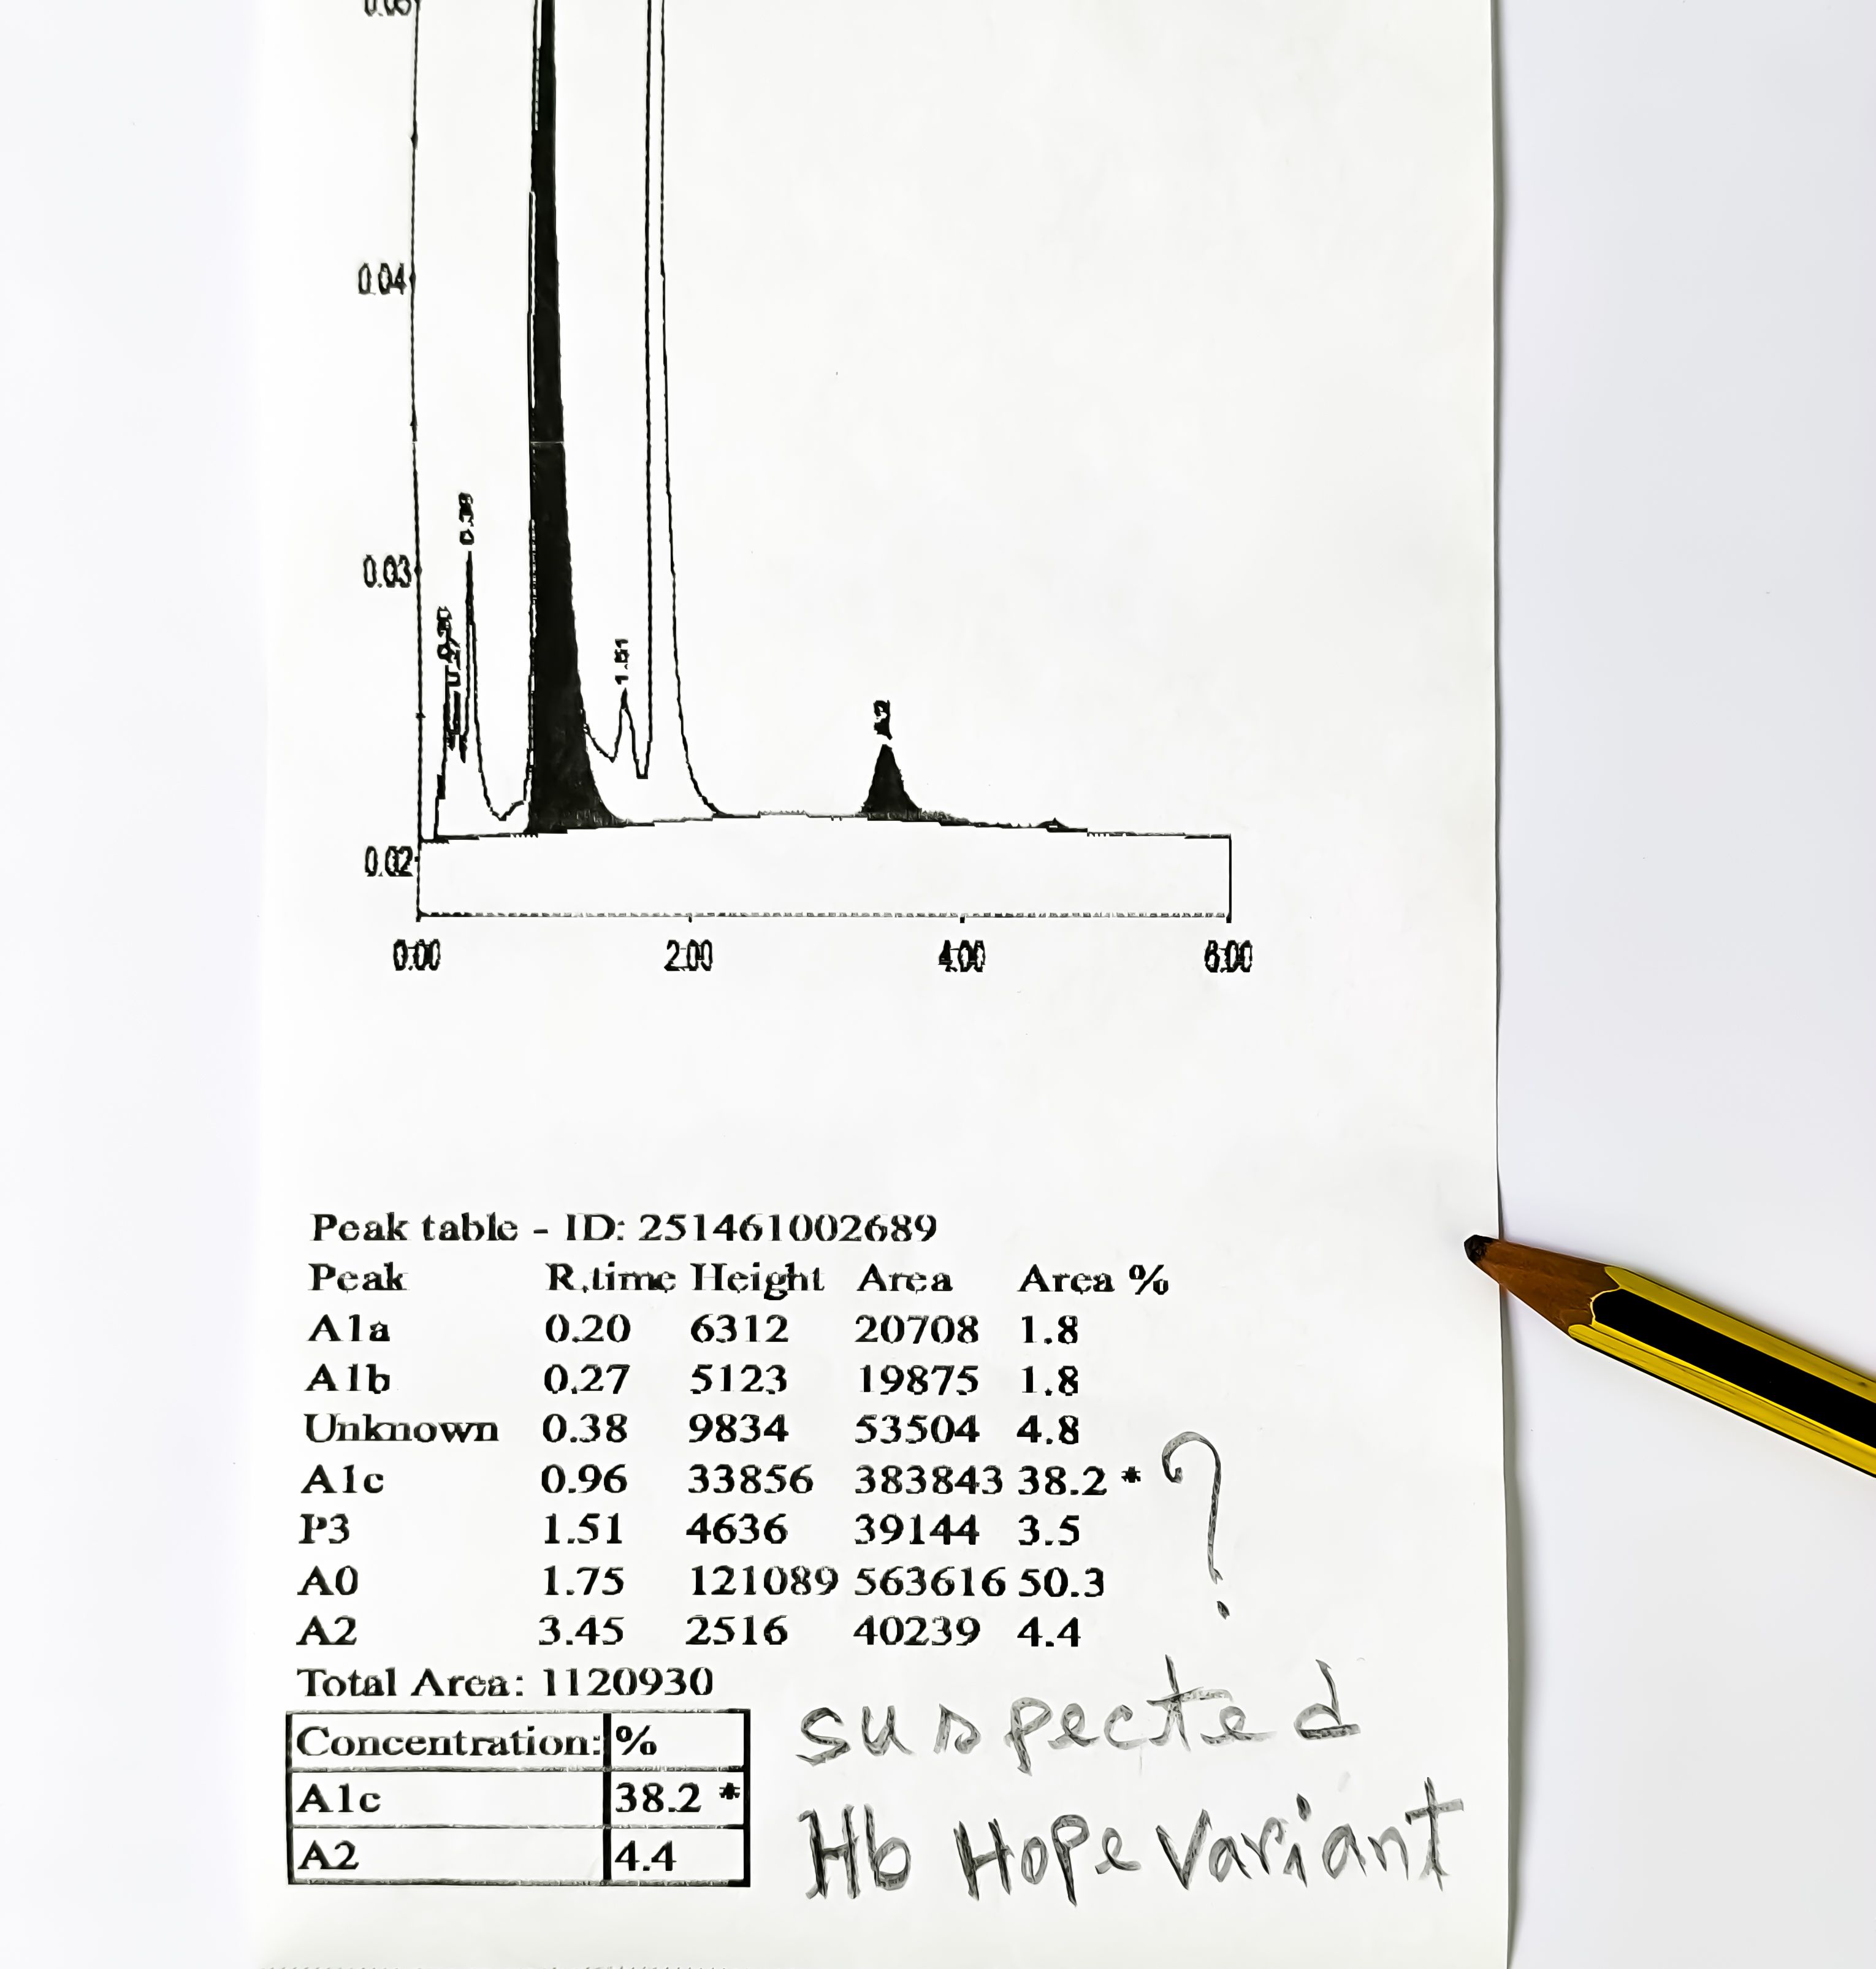 0.04
0.38
0.03
0.20
0.27
1.51
0.02
0.00 2.00 4.00 6.00
Peak table - ID: 251461002689
Peak R.time Height Area Area %
A1a 0.20 6312 20708 1.8
A1b 0.27 5123 19875 1.8
Unknown 0.38 9834 53504 4.8
A1c 0.96 33856 383843 38.2 * ?
P3 1.51 4636 39144 3.5
A0 1.75 121089 563616 50.3
A2 3.45 2516 40239 4.4
Total Area: 1120930
Concentration: %
A1c 38.2 *
A2 4.4
suspected
Hb Hope Variant